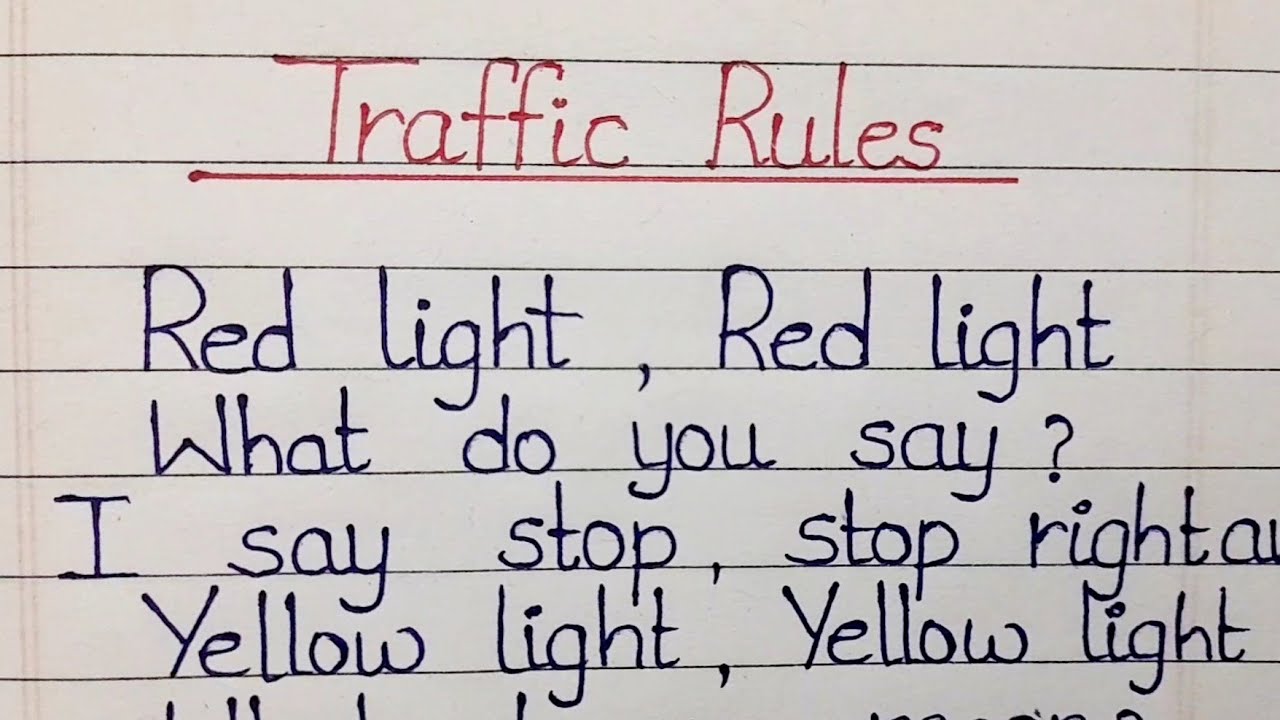 Traffic Rules
Red light, Red light
What do you say?
I say stop, stop right
Yellow light, Yellow light